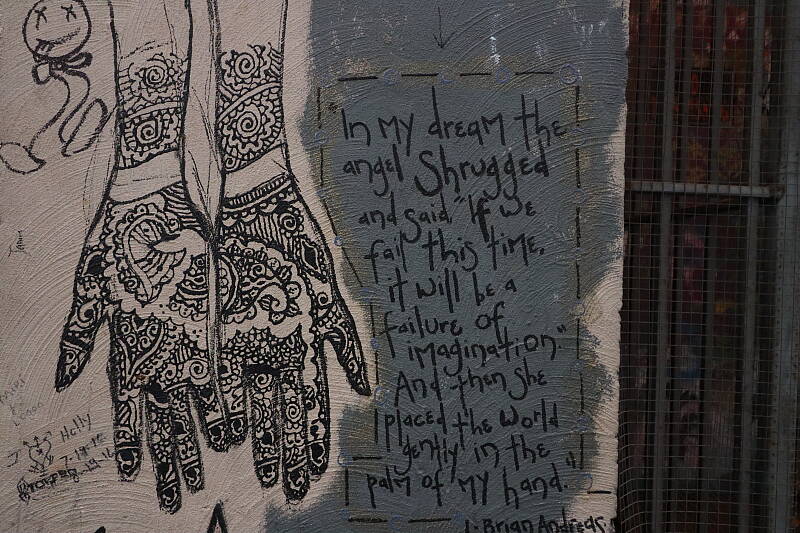 "In my dream the
angel Shrugged
and said "If we
fail this time,
it will be a
failure of
imagination"
And then She
placed the World
gently in the
palm of my hand."
- Brian Andreas
Holly
7-19-12